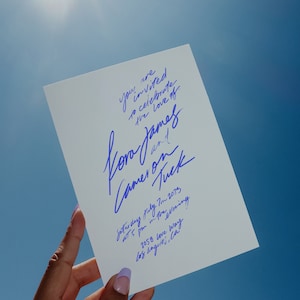 you are
invited
to celebrate
the love of
Kora James
and
Cameron
Tuck
Saturday July 7th
at 5 in the evening
Love Way
Los Angeles, CA